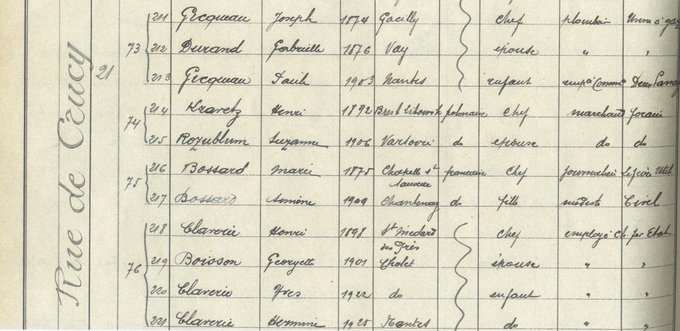 Rue de Crucy
21
73
211 Gicqueau Joseph 1874 Gacilly chef plombier Usine à gaz
212 Durand Gabrielle 1876 Vay épouse " "
213 Gicqueau Paule 1903 Nantes enfant emp. Comm.
74
214 Kravetz Henri 1892 Brest Litowsk polonaise chef marchand forain
215 Rozenblum Suzanne 1906 Varsovie do épouse do do
75
216 Bossard Marie 1875 Chapelle St Sauveur française chef journalière
217 Bossard 1909 Chantenay do fille modiste
76
218 Claverie Henri 1898 St Médard des Prés chef employé Ch. fer Etat
219 Boisson Georgette 1901 Cholet épouse " "
220 Claverie Yves 1922 do enfant " "
221 Claverie Hermine 1925 Nantes do " "